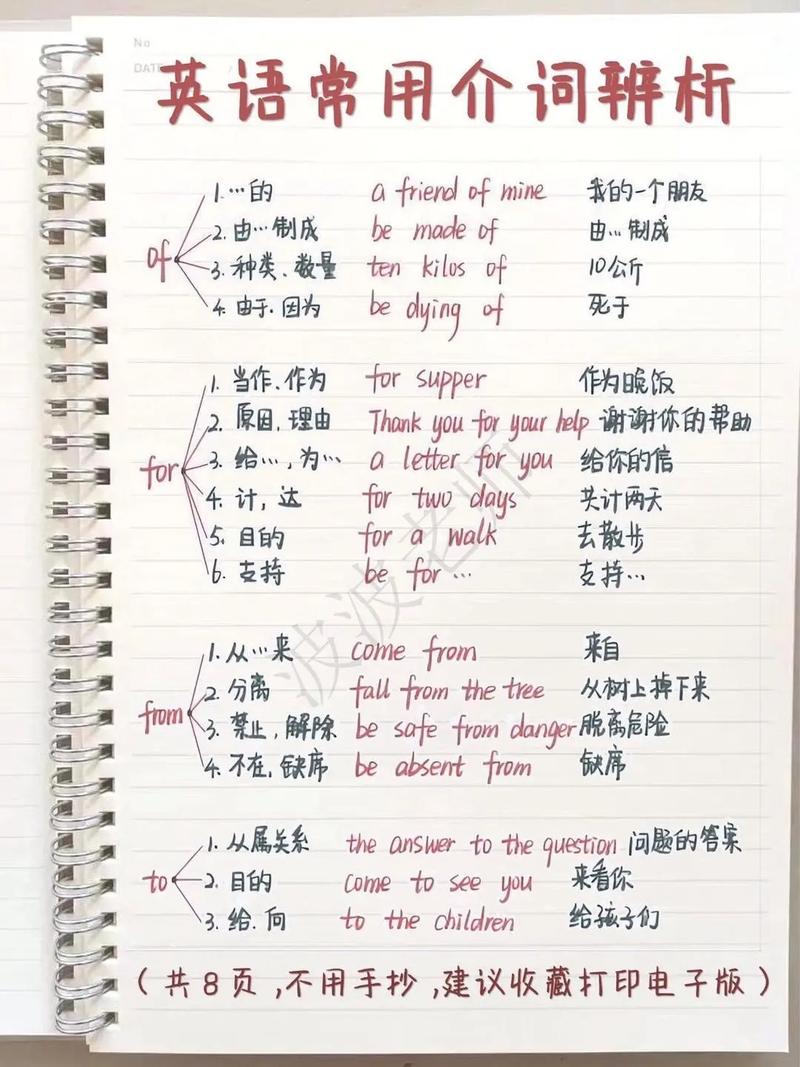 No
DATE
英语常用介词辨析
of
1. …的 a friend of mine 我的一个朋友
2. 由…制成 be made of 由…制成
3. 种类、数量 ten kilos of 10公斤
4. 由于、因为 be dying of 死于
for
1. 当作、作为 for supper 作为晚饭
2. 原因, 理由 Thank you for your help 谢谢你的帮助
3. 给…, 为… a letter for you 给你的信
4. 计, 达 for two days 共计两天
5. 目的 for a walk 去散步
6. 支持 be for … 支持…
from
1. 从…来 come from 来自
2. 分离 fall from the tree 从树上掉下来
3. 禁止, 解除 be safe from danger 脱离危险
4. 不在, 缺席 be absent from 缺席
to
1. 从属关系 the answer to the question 问题的答案
2. 目的 come to see you 来看你
3. 给、向 to the children 给孩子们
(共8页,不用手抄,建议收藏打印电子版)
波波老师